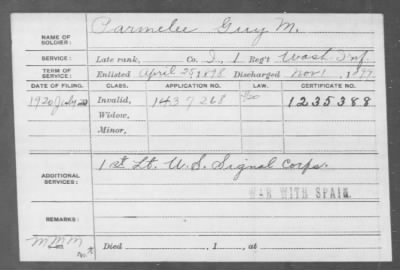 NAME OF SOLDIER: Parmelee Guy M.
SERVICE: Late rank, Co. I, 1 Reg't Wash. Inf.
TERM OF SERVICE: Enlisted April 25 1898 Discharged Nov 1, 1899
DATE OF FILING. CLASS. APPLICATION NO. LAW. CERTIFICATE NO.
1920 July Invalid, 1437268 1235388
Widow,
Minor,
ADDITIONAL SERVICES: 1st Lt. U.S. Signal Corps.
WAR WITH SPAIN.
REMARKS:
Died , 1 , at